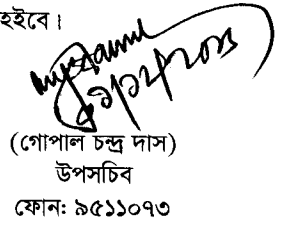 হইবে।
(গোপাল চন্দ্র দাস)
উপসচিব
ফোন: ৯৫১১০৭৩